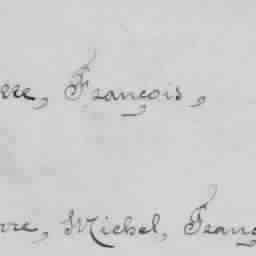 rre, François,
rre, Michel, Franç